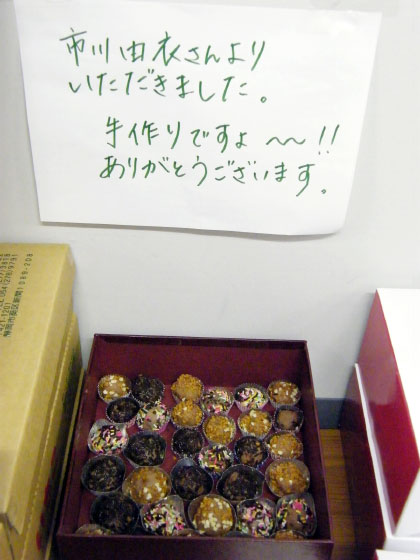 市川由衣さんより
いただきました。
手作りですよ〜〜!!
ありがとうございます。